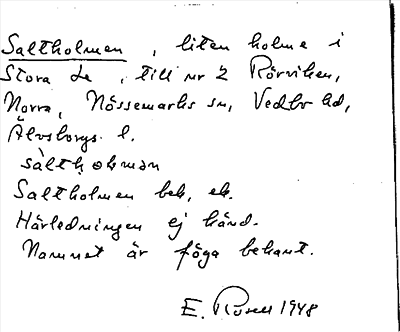 Saltholmen, liten holme i
Stora Le, till nr 2 Rörviken,
Norra, Nössemarks sn, Vedbo hd,
Älvsborgs l.
Saltholmen bek, ek.
Härledningen ej känd.
Namnet är föga bekant.
E. Rosell 1948